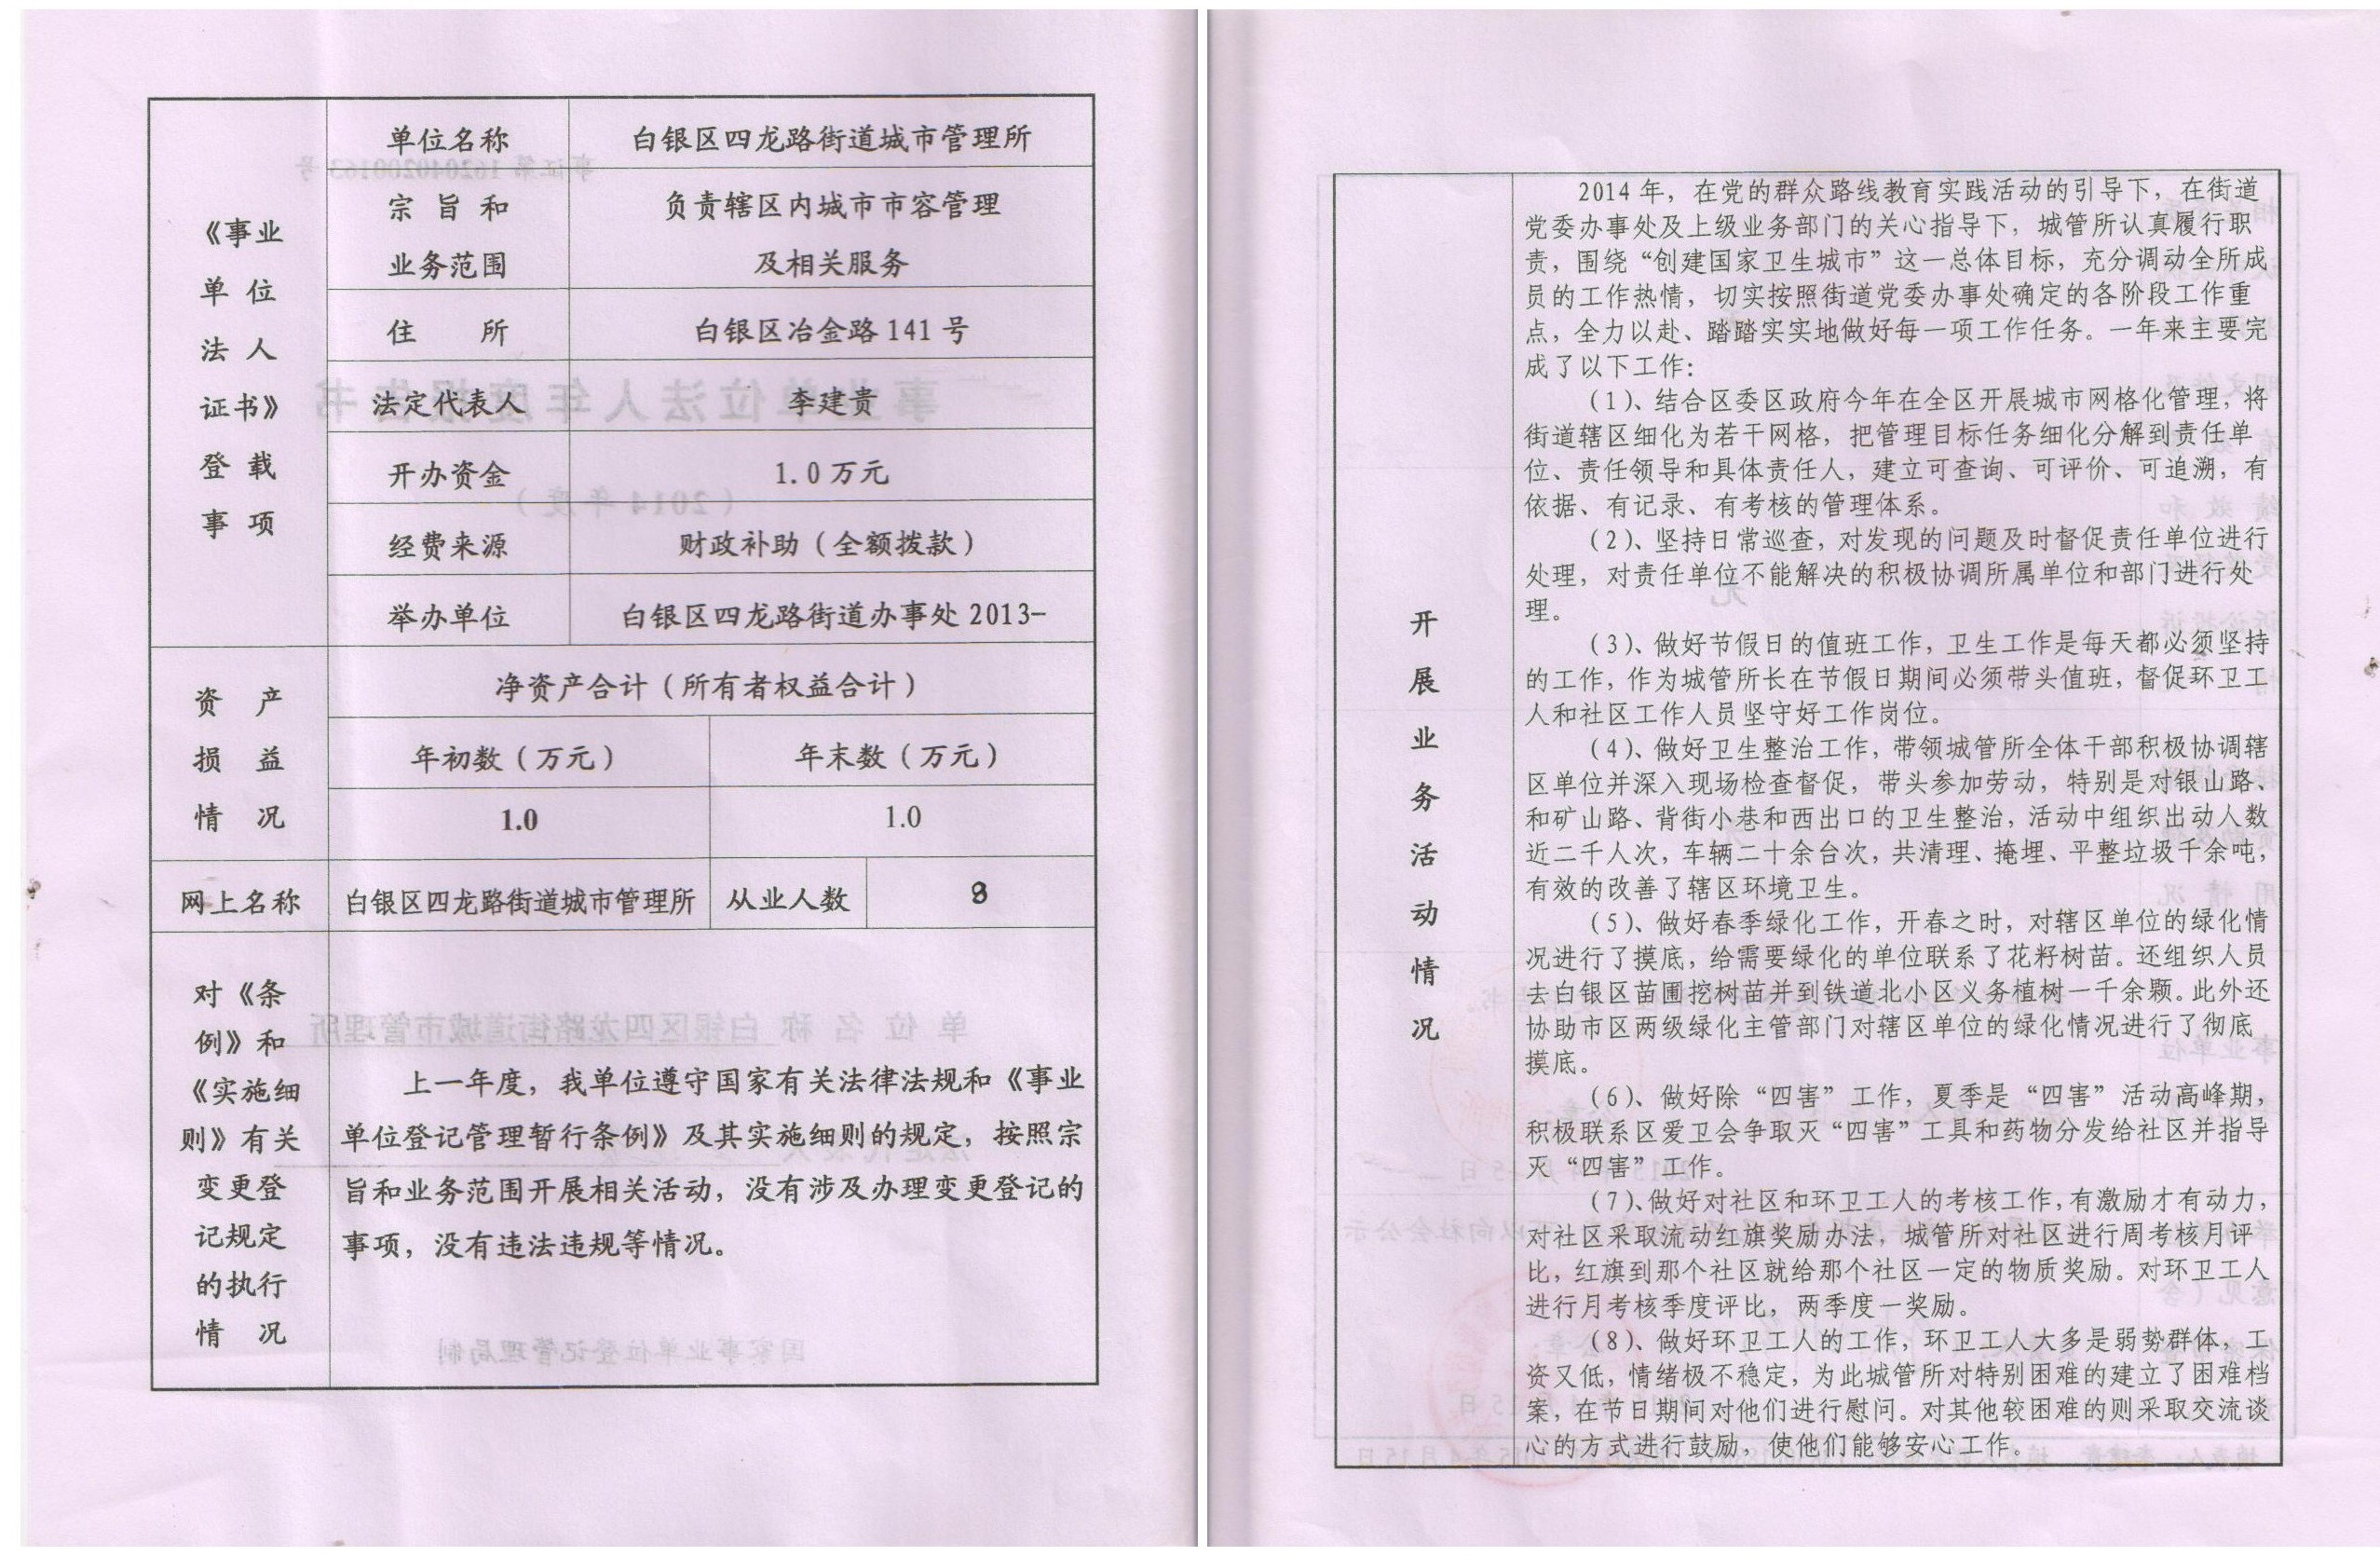 《事业
单位
法人
证书》
登载
事项
单位名称
白银区四龙路街道城市管理所
宗旨和
业务范围
负责辖区内城市市容管理
及相关服务
住 所
白银区冶金路141号
法定代表人
李建贵
开办资金
1.0万元
经费来源
财政补助（全额拨款）
举办单位
白银区四龙路街道办事处2013-
资 产
损 益
情 况
净资产合计（所有者权益合计）
年初数（万元）
年末数（万元）
1.0
1.0
网上名称
白银区四龙路街道城市管理所
从业人数
8
对《条
例》和
《实施细
则》有关
变更登
记规定
的执行
情 况
上一年度，我单位遵守国家有关法律法规和《事业
单位登记管理暂行条例》及其实施细则的规定，按照宗
旨和业务范围开展相关活动，没有涉及办理变更登记的
事项，没有违法违规等情况。
开
展
业
务
活
动
情
况
2014年，在党的群众路线教育实践活动的引导下，在街道
党委办事处及上级业务部门的关心指导下，城管所认真履行职
责，围绕“创建国家卫生城市”这一总体目标，充分调动全所成
员的工作热情，切实按照街道党委办事处确定的各阶段工作重
点，全力以赴、踏踏实实地做好每一项工作任务。一年来主要完
成了以下工作：
（1）、结合区委区政府今年在全区开展城市网格化管理，将
街道辖区细化为若干网格，把管理目标任务细化分解到责任单
位、责任领导和具体责任人，建立可查询、可评价、可追溯，有
依据、有记录、有考核的管理体系。
（2）、坚持日常巡查，对发现的问题及时督促责任单位进行
处理，对责任单位不能解决的积极协调所属单位和部门进行处
理。
（3）、做好节假日的值班工作，卫生工作是每天都必须坚持
的工作，作为城管所长在节假日期间必须带头值班，督促环卫工
人和社区工作人员坚守好工作岗位。
（4）、做好卫生整治工作，带领城管所全体干部积极协调辖
区单位并深入现场检查督促，带头参加劳动，特别是对银山路、
和矿山路、背街小巷和西出口的卫生整治，活动中组织出动人数
近二千人次，车辆二十余台次，共清理、掩埋、平整垃圾千余吨，
有效的改善了辖区环境卫生。
（5）、做好春季绿化工作，开春之时，对辖区单位的绿化情
况进行了摸底，给需要绿化的单位联系了花籽树苗。还组织人员
去白银区苗圃挖树苗并到铁道北小区义务植树一千余颗。此外还
协助市区两级绿化主管部门对辖区单位的绿化情况进行了彻底
摸底。
（6）、做好除“四害”工作，夏季是“四害”活动高峰期，
积极联系区爱卫会争取灭“四害”工具和药物分发给社区并指导
灭“四害”工作。
（7）、做好对社区和环卫工人的考核工作，有激励才有动力，
对社区采取流动红旗奖励办法，城管所对社区进行周考核月评
比，红旗到那个社区就给那个社区一定的物质奖励。对环卫工人
进行月考核季度评比，两季度一奖励。
（8）、做好环卫工人的工作，环卫工人大多是弱势群体，工
资又低，情绪极不稳定，为此城管所对特别困难的建立了困难档
案，在节日期间对他们进行慰问。对其他较困难的则采取交流谈
心的方式进行鼓励，使他们能够安心工作。